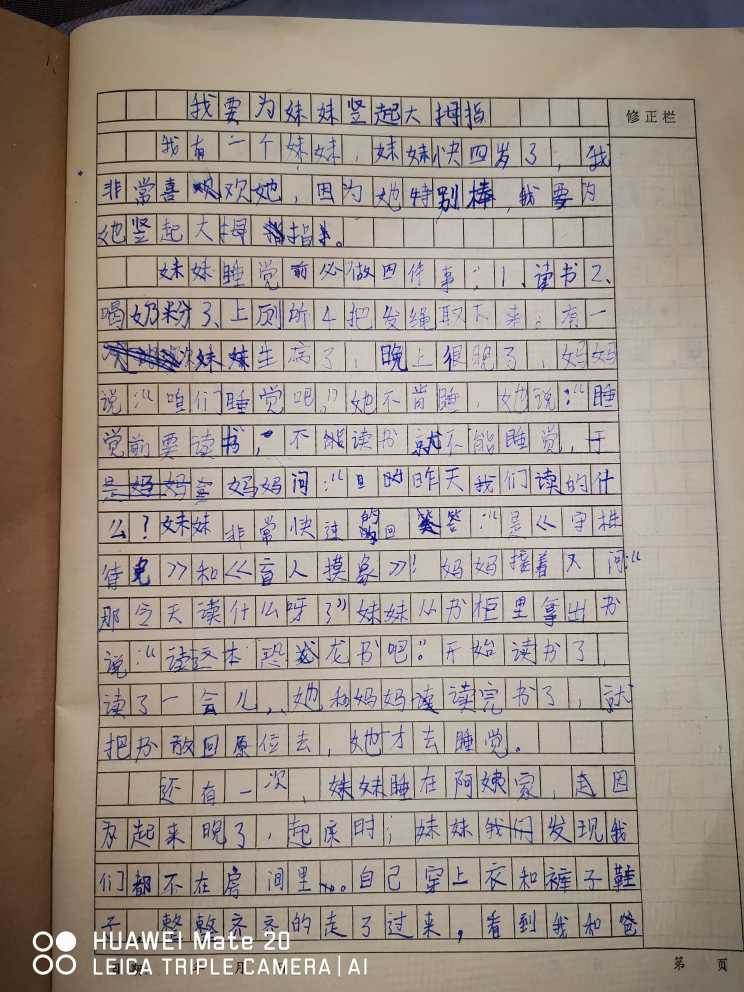 我要为妹妹竖起大拇指
修正栏
我有一个妹妹，妹妹快四岁了，我
非常喜欢她，因为她特别棒，我要为
她竖起大拇指。
妹妹睡觉前必做四件事：1、读书2、
喝奶粉3、上厕所4把发绳取下来。有一
次妹妹生病了，晚上很晚了，妈妈
说：“咱们睡觉吧，”她不肯睡，她说：“睡
觉前要读书，不能读书就不能睡觉，于
是妈妈问：“昨天我们读的什
么？妹妹非常快速的回答：“是《守株
待兔》和《盲人摸象》！妈妈接着又问：“
那今天读什么呀？”妹妹从书柜里拿出书
说：“读这本恐龙书吧。”开始读书了，
读了一会儿，她和妈妈读完书了，就
把书放回原位去，她才去睡觉。
还有一次，妹妹睡在阿姨家，因
为起来晚了，起床时；妹妹发现我
们都不在房间里。自己穿上衣和裤子鞋
子，整整齐齐的走了过来，看到我和爸
第 页
HUAWEI Mate 20
LEICA TRIPLE CAMERA | AI